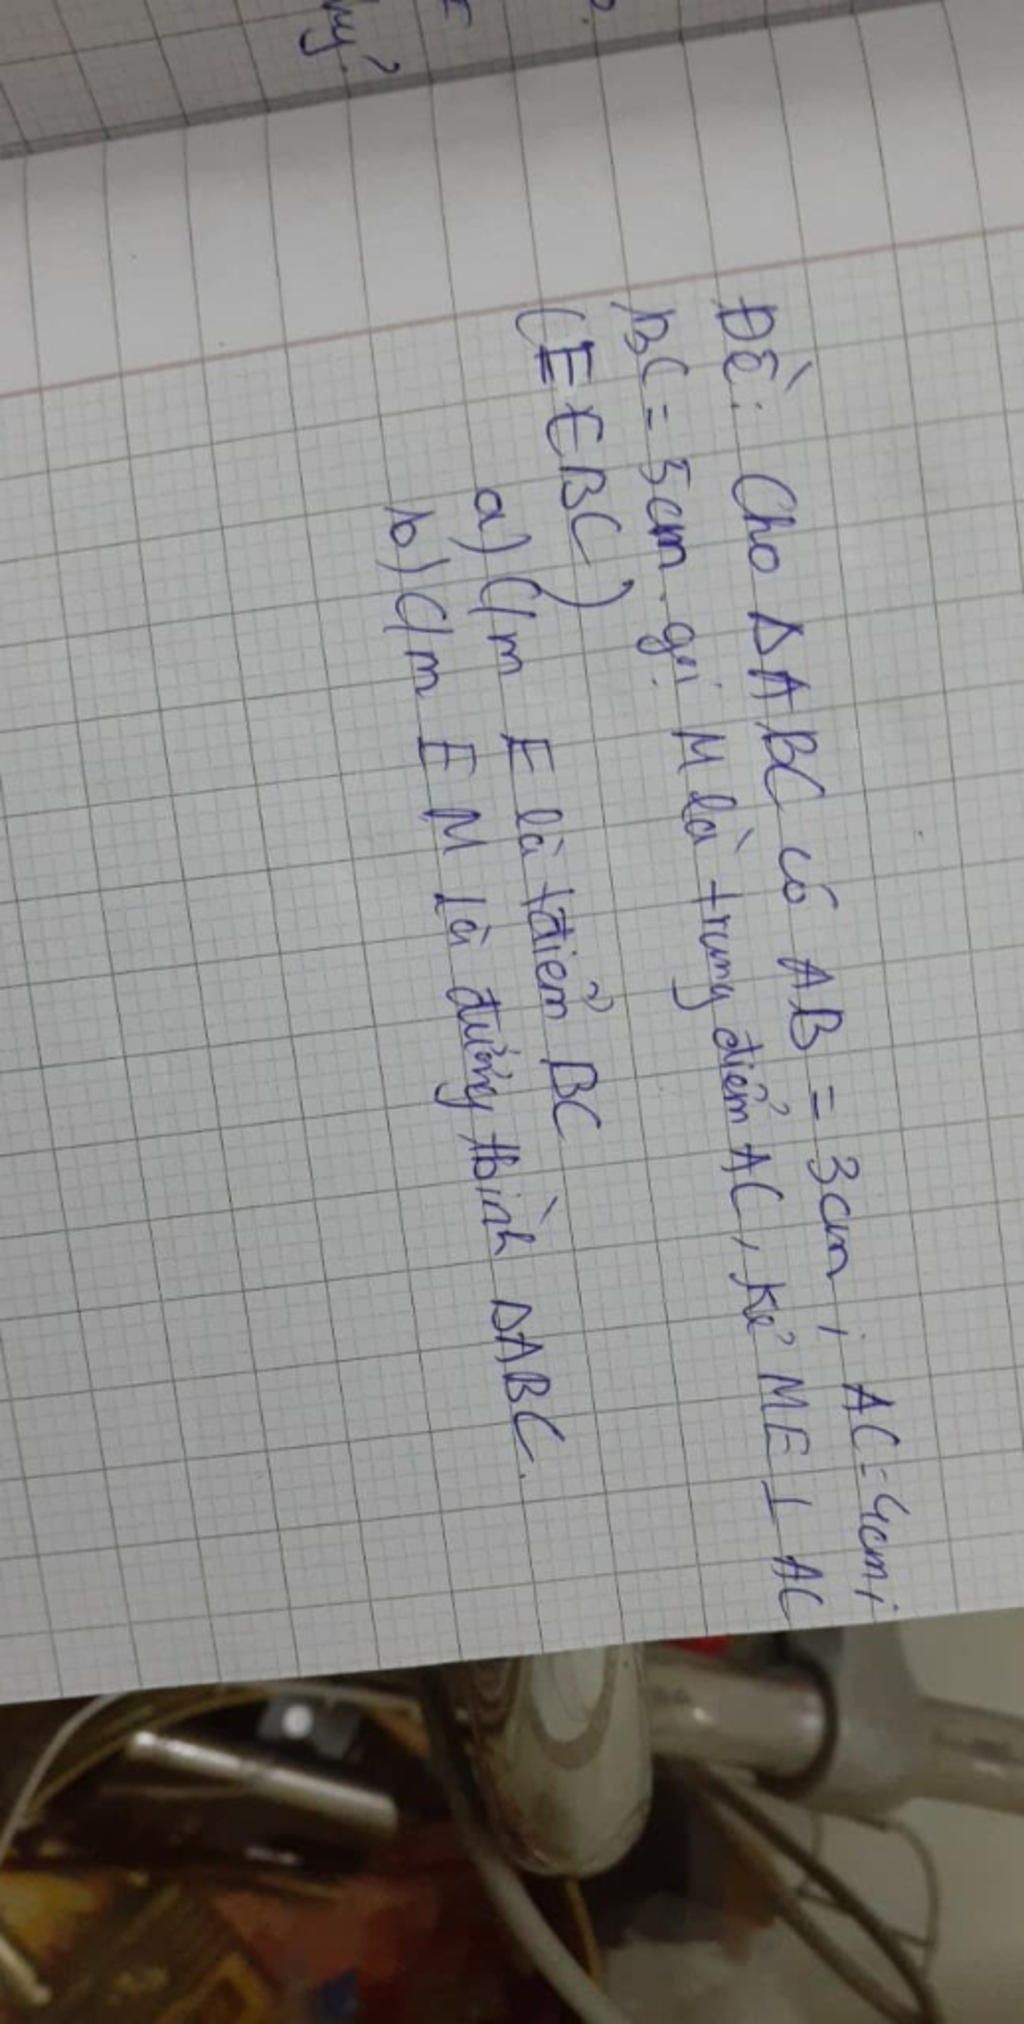 Đề: Cho ΔABC có AB = 3cm; AC = 4cm;
BC = 5cm. gọi M là trung điểm AC, kẻ ME ⊥ AC
(E ∈ BC)
a) C/m E là tđiểm BC
b) C/m EM là đường tbình ΔABC.